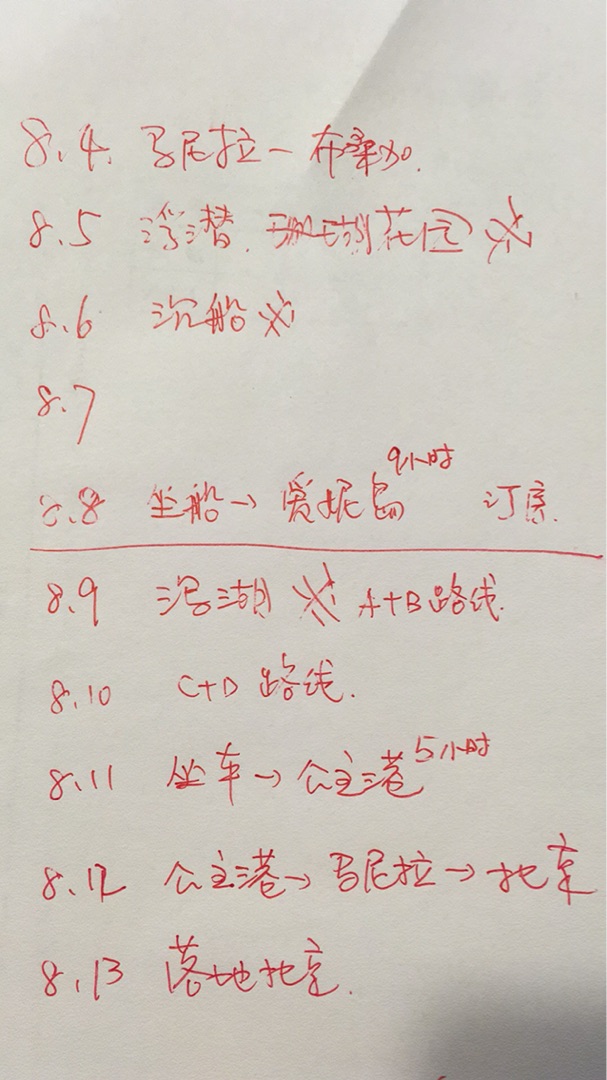 8.4. 马尼拉—布桑加.
8.5 浮潜. 珊瑚花园
8.6 沉船
8.7
8.8 坐船→爱妮岛 9小时 订房.
8.9 泻湖 A+B路线.
8.10 C+D路线.
8.11 坐车→公主港 5小时
8.12 公主港→马尼拉→北京
8.13 落地北京.